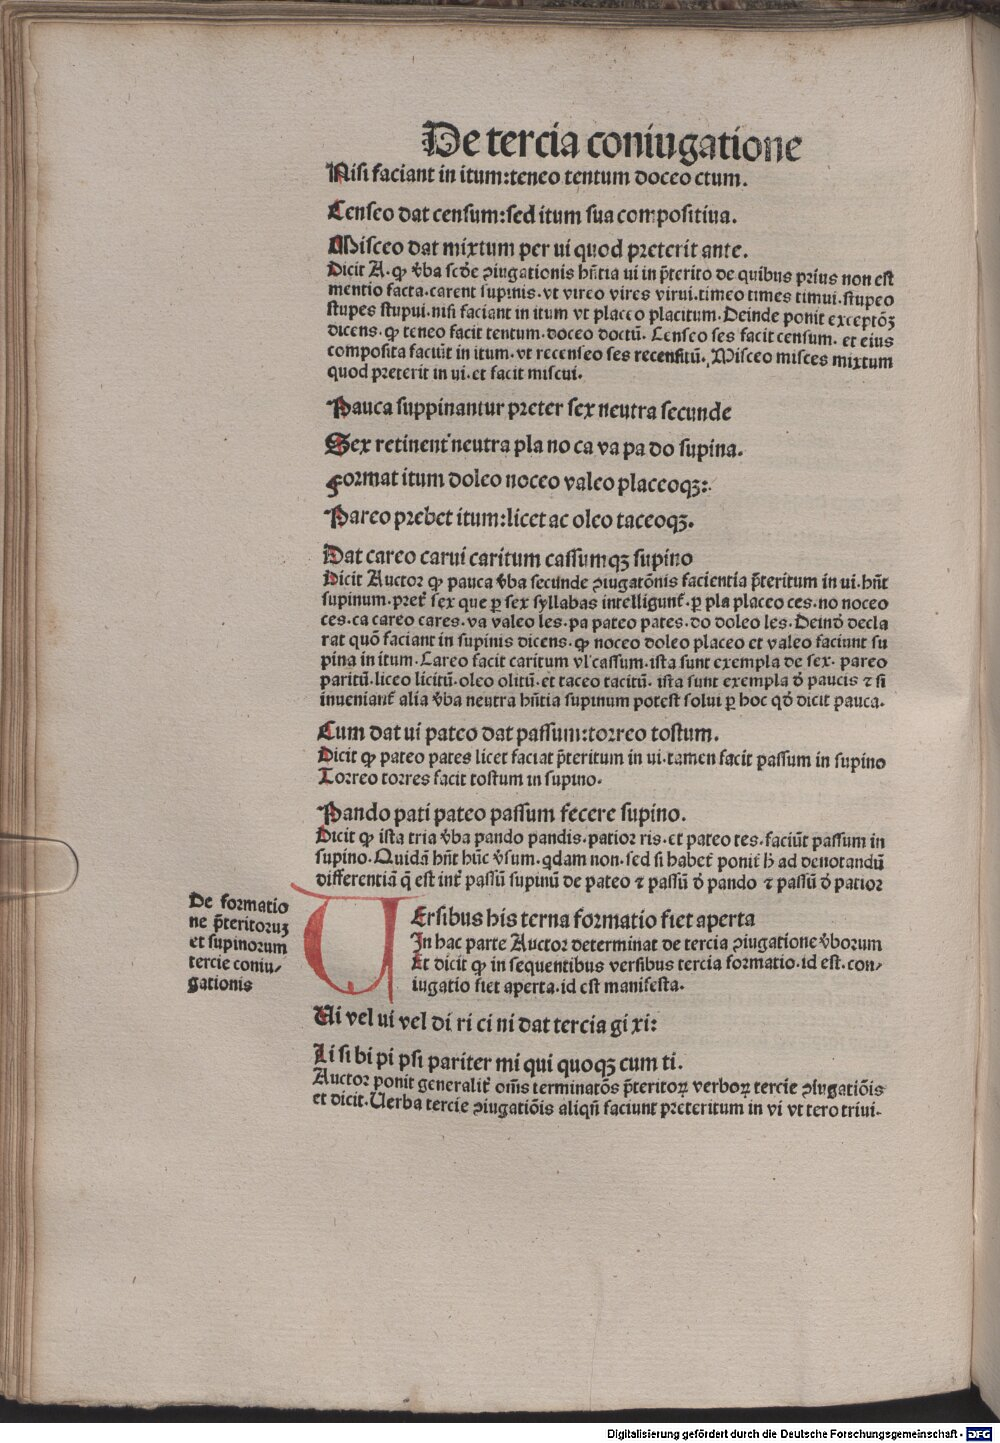 De tercia coniugatione
Nisi faciant in itum:teneo tentum doceo ctum.
Censeo dat censum:sed itum sua compositiua.
Misceo dat mixtum per ui quod preterit ante.
Dicit A. ꝙ v̄ba scd̄e ꝯiugationis hn̄tia ui in p̄terito de quibus prius non est
mentio facta.carent supinis.vt vireo vires virui.timeo times timui.stupeo
stupes stupui.nisi faciant in itum vt placeo placitum.Deinde ponit exceptōꝫ
dicens.ꝙ teneo facit tentum.doceo doctū. Censeo ses facit censum. et eius
composita faciūt in itum.vt recenseo ses recensitū. Misceo misces mixtum
quod preterit in ui.et facit miscui.
Pauca suppinantur preter sex neutra secunde
Sex retinent neutra pla no ca va pa do supina.
Format itum doleo noceo valeo placeoqꝫ:
Pareo prebet itum:licet ac oleo taceoqꝫ.
Dat careo carui caritum cassumqꝫ supino
Dicit Auctor ꝙ pauca v̄ba secunde ꝯiugatōnis facientia p̄teritum in ui.hn̄t
supinum.pret̄ sex que ꝑ sex syllabas intelligunt̄.ꝑ pla placeo ces.no noceo
ces.ca careo cares.va valeo les.pa pateo pates.do doleo les.Deind̄ decla
rat quō faciant in supinis dicens.ꝙ noceo doleo placeo et valeo faciunt su
pina in itum.Careo facit caritum vl̓ cassum.ista sunt exempla de sex. pareo
paritū.liceo licitū.oleo olitū.et taceo tacitū. ista sunt exempla d̄ paucis ⁊ si
inueniant̄ alia v̄ba neutra hn̄tia supinum potest solui ꝑ hoc qd̄ dicit pauca.
Cum dat ui pateo dat passum:torreo tostum.
Dicit ꝙ pateo pates licet faciat p̄teritum in ui.tamen facit passum in supino
Torreo torres facit tostum in supino.
Pando pati pateo passum fecere supino.
Dicit ꝙ ista tria v̄ba pando pandis.patior ris.et pateo tes.faciūt passum in
supino.Quidā hn̄t hūc v̄sum.qdam non.sed si habet̄ ponit̄ h̄ ad denotandū
differentiā q̄ est int̄ passū supinū de pateo ⁊ passū d̄ pando ⁊ passū d̄ patior
De formatio
ne p̄teritoruꝫ
et supinorum
tercie coniu-
gationis
UErsibus his terna formatio fiet aperta
In hac parte Auctor determinat de tercia ꝯiugatione v̄borum
Et dicit ꝙ in sequentibus versibus tercia formatio.id est.con-
iugatio fiet aperta.id est manifesta.
Ui vel ui vel di ri ci ni dat tercia gi xi:
Li si bi pi psi pariter mi qui quoqꝫ cum ti.
Auctor ponit generalit̄ om̄s terminatōs p̄teritoꝝ verboꝝ tercie ꝯiugatiōis
et dicit.Uerba tercie ꝯiugatiōis aliqn̄ faciunt preteritum in vi vt tero triui.
Digitalisierung gefördert durch die Deutsche Forschungsgemeinschaft - DFG